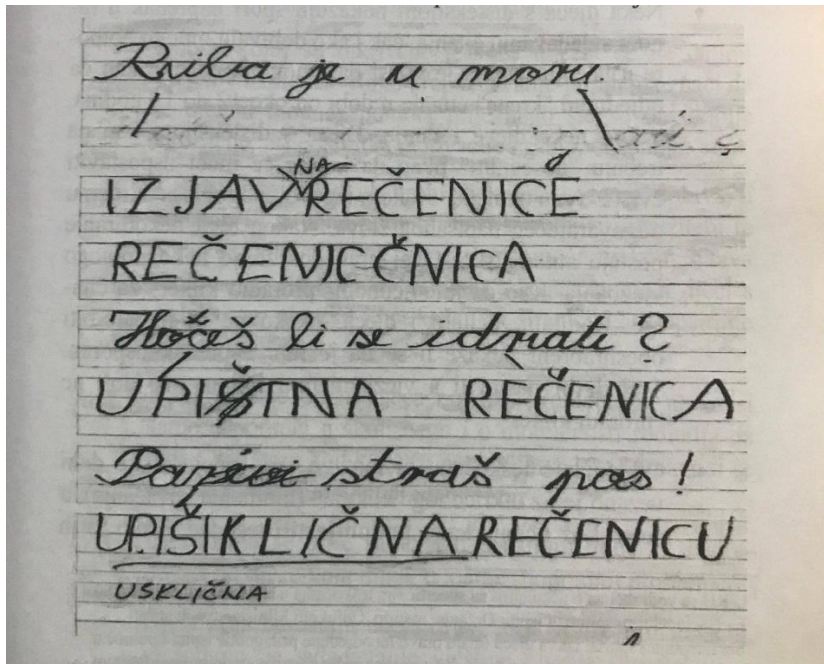 Rniba je u moru.
IZJAVNA REČENICE
REČENICČNICA
Hočeš li se idrati?
UPIŠTNA REČENICA
Pazivi straš pas!
UPIŠIKLIČNA REČENICU
USKLIČNA